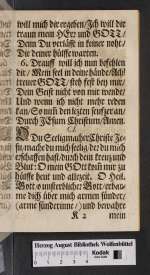 will mich dir ergeben/ Ich will dir
traun mein HErr und GOTT/
Denn Du verläst in keiner noht/
Dir deiner hülffe warten.
6. Drauff will ich nun befehlen
dir/ Mein seel in deine hände/ Ach
treuer GOTT/ steh fest bey mir/
Dein Geist nicht von mir wende/
Und wenn ich nicht mehr reden
kan/ So nim den letzten seuffzer an/
Durch JEsum Christum/ Amen.
CI.
DU Seeligmacher Christe Je-
su/ mache du mich seelig/ der du mich
erschaffen hast/ durch dein creutz und
Blut: O mein Gott komm mir zu
hülffe heut und allezeit. O Heil.
Gott o unsterblicher Gott/ erbar-
me dich über mich armen sünder/
(arme sünderinne/) und bewahre
K 2 mein
Herzog August Bibliothek Wolfenbüttel